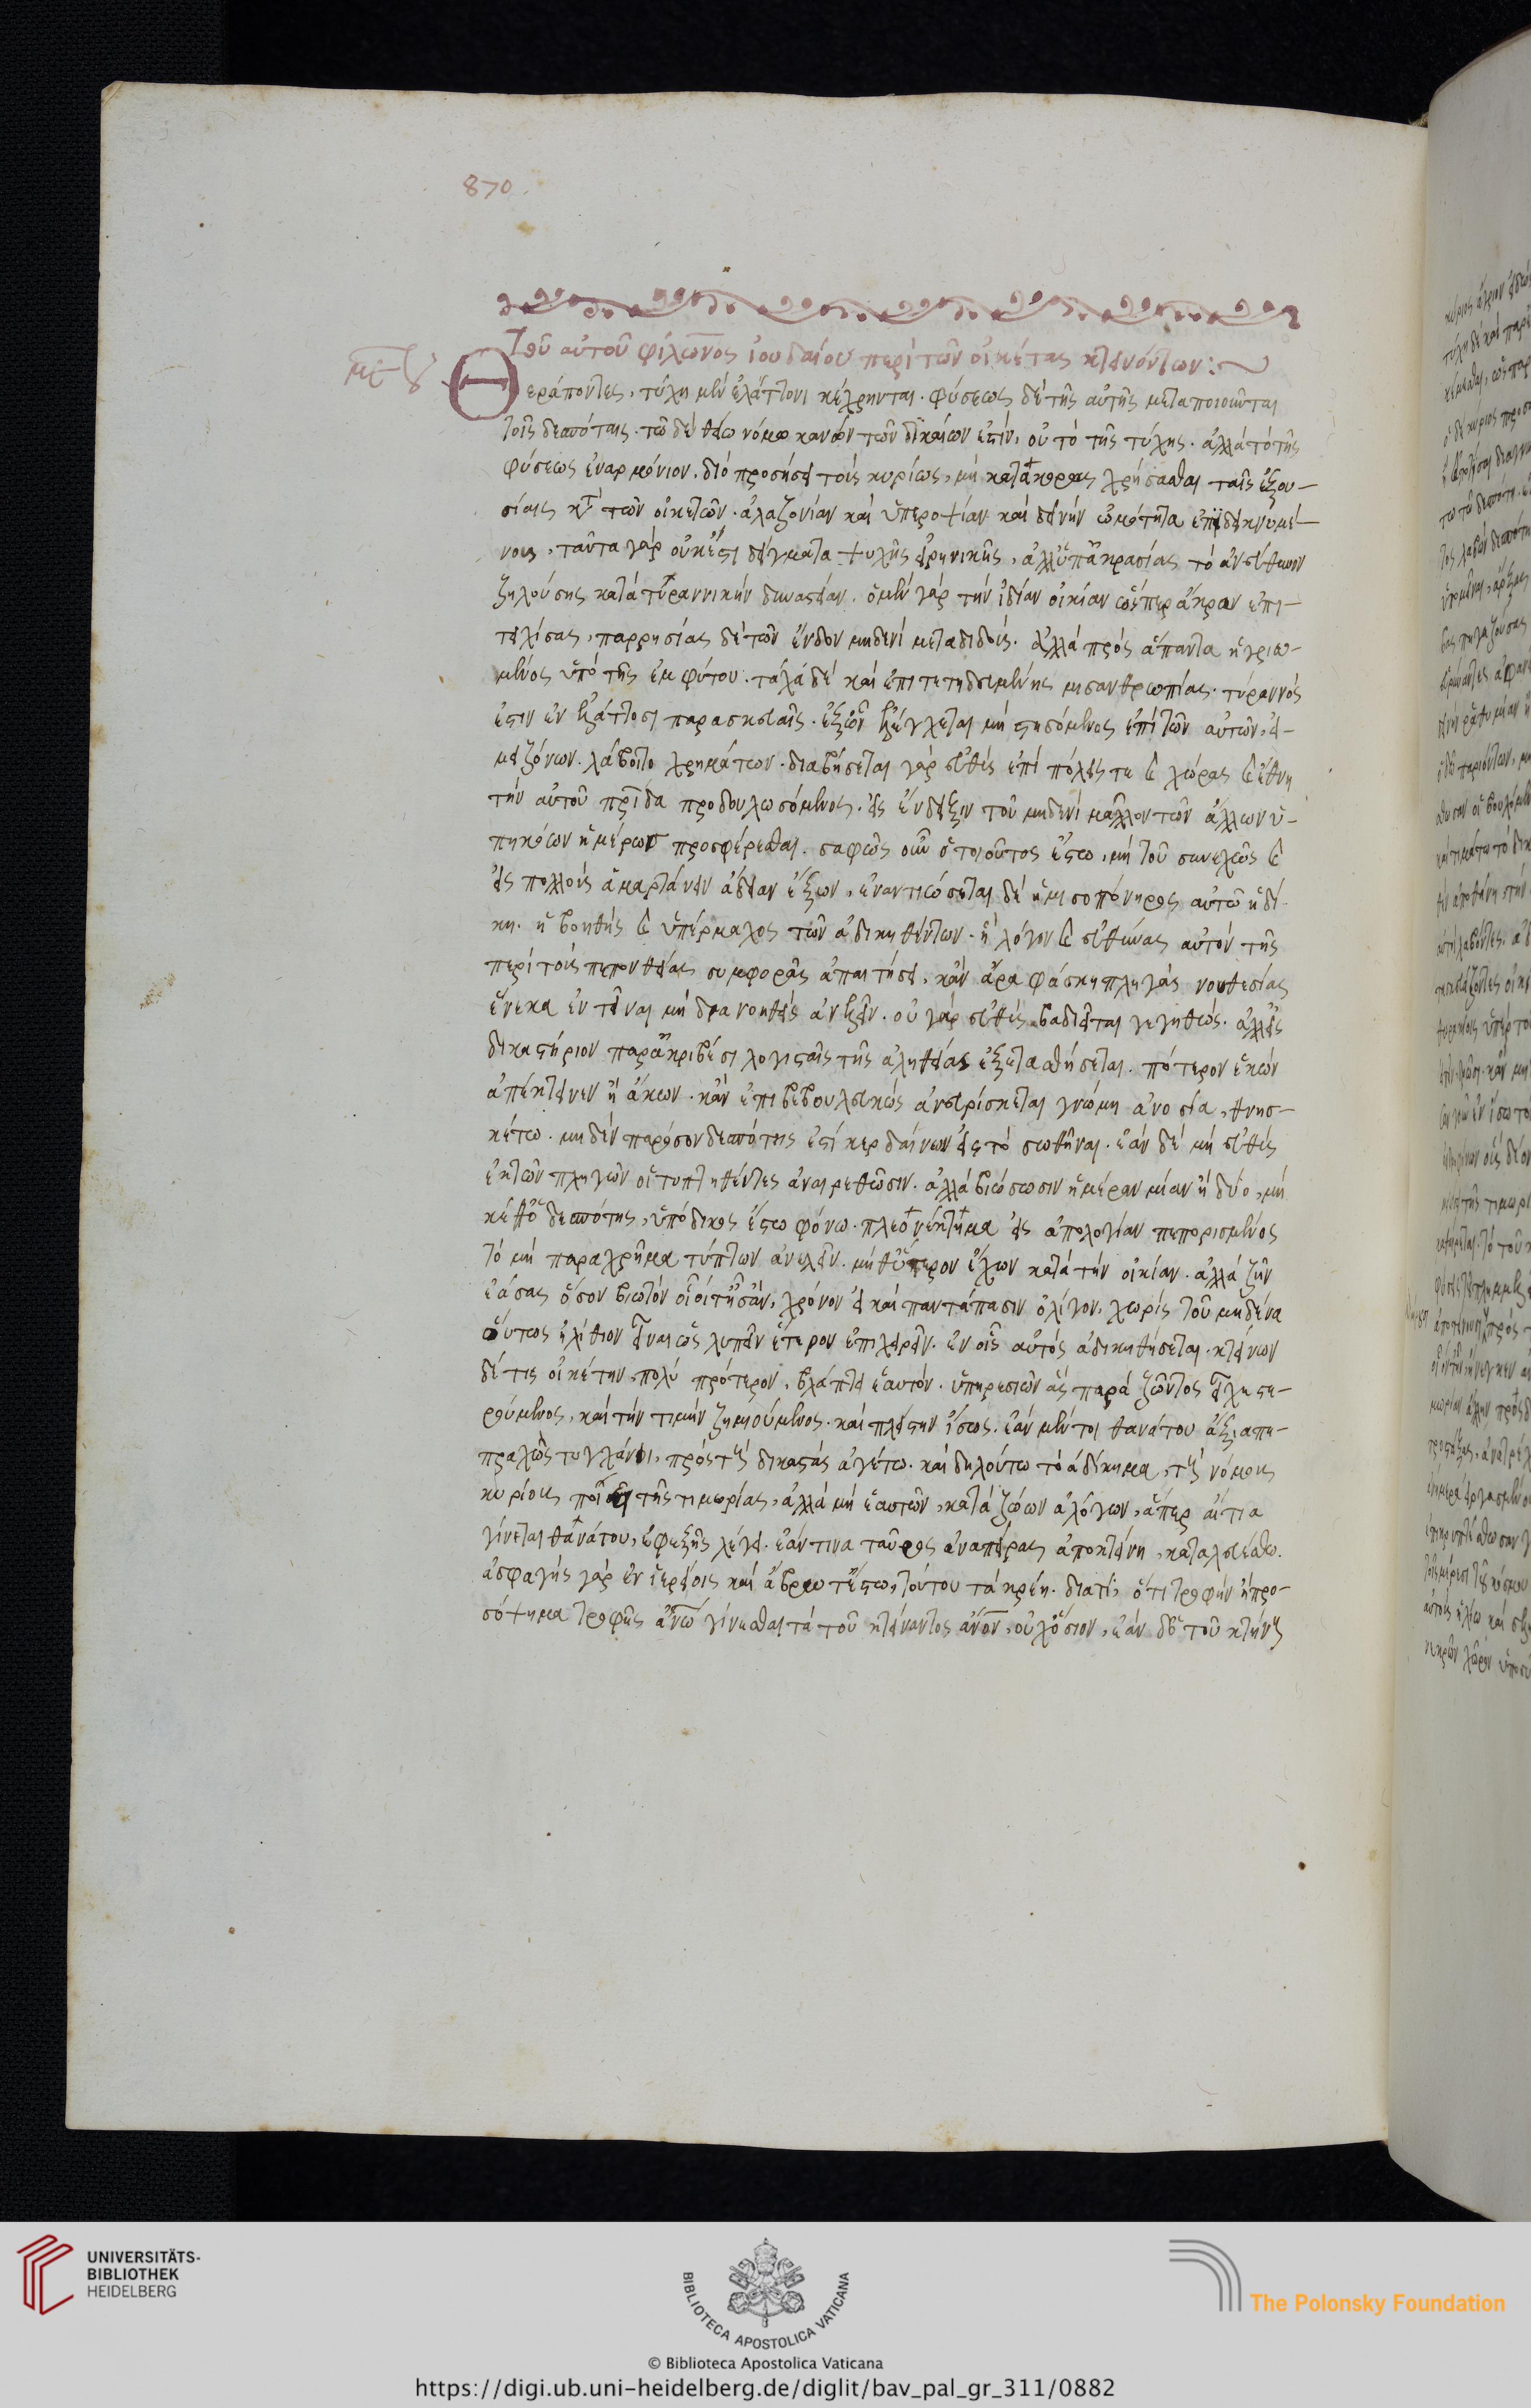 870.
Τοῦ αὐτοῦ φίλωνος ἰουδαίου περὶ τῶν οἰκέτας κτεινόντων:~
Θεράποντες, τύχη μὲν ἐλάττονι κέχρηνται. φύσεως δὲ τῆς αὐτῆς μεταποιοῦνται
τοῖς δεσπόταις. τῶ δὲ θείω νόμω κανὼν τῶν δικαίων ἐστὶν, οὐ τὸ τῆς τύχης. ἀλλὰ τὸ τῆς
φύσεως ἐναρμόνιον. διὸ προσήκει τοὺς κυρίους, μὴ κατακόρως χρήσασθαι ταῖς ἐξου-
σίαις κτ τῶν οἰκετῶν. ἀλαζονίαν καὶ ὑπεροψίαν καὶ δεινὴν ὠμότητα ἐπιδεικνυμέ-
νους, ταῦτα γὰρ οὐκ ἔστι δείγματα ψυχῆς εἰρηνικῆς, ἀλλ' ὑπ' ἀκρασίας τὸ ἀνεύθυνον
ζηλούσης κατὰ τυραννικὴν δυναστείαν. ὁ μὲν γὰρ τὴν ἰδίαν οἰκίαν ὥσπερ ἄκραν ἐπι-
τειχίσας, παρρησίας δὲ τῶν ἔνδον μηδενὶ μεταδιδούς. ἀλλὰ πρὸς ἅπαντα ἠγριω-
μένος ὑπὸ τῆς ἐμφύτου. τάχα δὲ καὶ ἐπιτετηδευμένης μισανθρωπίας. τύραννός
ἐστιν ἐν ἐλάττοσι παρασκευαῖς. ἐξ ὧν ἐλέγχεται μὴ στησόμενος ἐπὶ τῶν αὐτῶν, εἰ
μειζόνων. λάβοιτο χρημάτων. διαβήσεται γὰρ εὐθὺς ἐπὶ πόλεις τε καὶ χώρας καὶ ἔθνη
τὴν αὐτοῦ πρίδα προδουλωσόμενος. εἰς ἔνδειξιν τοῦ μηδενὶ μᾶλλον τῶν ἄλλων ὑ-
πηκόων ἡμέρως προσφέρεσθαι. σαφῶς οὖν ὁ τοιοῦτος ἔστω, μὴ τοῦ συνεχῶς καὶ
εἰς πολλοὺς ἁμαρτάνειν ἄδειαν ἕξων, ἐναντιώσεται δὲ ἡ μισοπόνηρος αὐτῶ ἡ δί-
κη. ἡ βοηθὸς καὶ ὑπέρμαχος τῶν ἀδικηθέντων. ἣ λόγον καὶ εὐθύνας αὐτὸν τῆς
περὶ τοὺς πεπονθότας συμφορᾶς ἀπαιτήσει, κἂν ἄρα φάσκη πληγὰς νουθεσίας
ἕνεκα ἐντεῖναι μὴ διανοηθεὶς ἀνελεῖν. οὐ γὰρ εὐθὺς βαδιεῖται γεγηθώς. ἀλλ' εἰς
δικαστήριον παρ' ἀκριβέσι λογισταῖς τῆς ἀληθείας ἐξετασθήσεται. πότερον ἑκὼν
ἀπέκτεινεν ἢ ἄκων. κἂν ἐπιβεβουλευκὼς ἀνευρίσκεται γνώμη ἀνοσία, θνησ-
κέτω. μηδὲν παρόσον δεσπότης ἐστὶ κερδαίνων εἰς τὸ σωθῆναι. ἐὰν δὲ μὴ εὐθὺς
ἐκ τῶν πληγῶν οἱ τυπτηθέντες ἀναιρεθῶσιν. ἀλλὰ βιώσωσιν ἡμέραν μίαν ἢ δύο, μη
κέθ' ὁ δεσπότης, ὑπόδικος ἔστω φόνω. πλεονέκτημα εἰς ἀπολογίαν πεπορισμένος
τὸ μὴ παραχρῆμα τύπτων ἀνελεῖν. μήθ' ὕστερον ἔχων κατὰ τὴν οἰκίαν. ἀλλὰ ζῆν
ἐάσας ὅσον βιωτὸν οἷοί τ' ἦσαν, χρόνον εἰ καὶ παντάπασιν ὀλίγον, χωρὶς τοῦ μηδένα
οὕτως ἠλίθιον εἶναι ὡς λυπεῖν ἕτερον ἐπιχειρεῖν. ἐν οἷς αὐτὸς ἀδικηθήσεται. κτείνων
δέ τις οἰκέτην, πολὺ πρότερον, βλάπτει ἑαυτόν. ὑπηρεσιῶν ἃς παρὰ ζῶντος εἶχε στε-
ρούμενος, καὶ τὴν τιμὴν ζημιούμενος. καὶ πλείστην ἴσως. ἐὰν μέντοι θανάτου ἄξια πε-
πραχὼς τυγχάνοι, πρὸς τοὺς δικαστὰς ἀγέτω. καὶ δηλούτω τὸ ἀδίκημα, τοὺς νόμους
κυρίους ποιῶν τῆς τιμωρίας, ἀλλὰ μὴ ἑαυτὸν, κατὰ ζώων ἀλόγων, ἅπερ αἴτια
γίνεται θανάτου, ἐφεξῆς λέγει. ἐάν τινα ταῦρος ἀναπείρας ἀποκτείνη, καταλευέσθω.
ἀσφαγὴς γὰρ ἐν ἱερείοις καὶ ἄβρωτ' ἔστω, τούτου τὰ κρέη. διατί, ὅτι τροφὴν ἢ προ-
σόψημα τροφῆς ἀνῶ γίνεσθαι τὰ τοῦ κτείναντος ἀνον, οὐχ ὅσιον, ἐὰν δ' ὁ τοῦ κτήνους
UNIVERSITÄTS-
BIBLIOTHEK
HEIDELBERG
BIBLIOTECA APOSTOLICA VATICANA
The Polonsky Foundation
© Biblioteca Apostolica Vaticana
https://digi.ub.uni-heidelberg.de/diglit/bav_pal_gr_311/0882